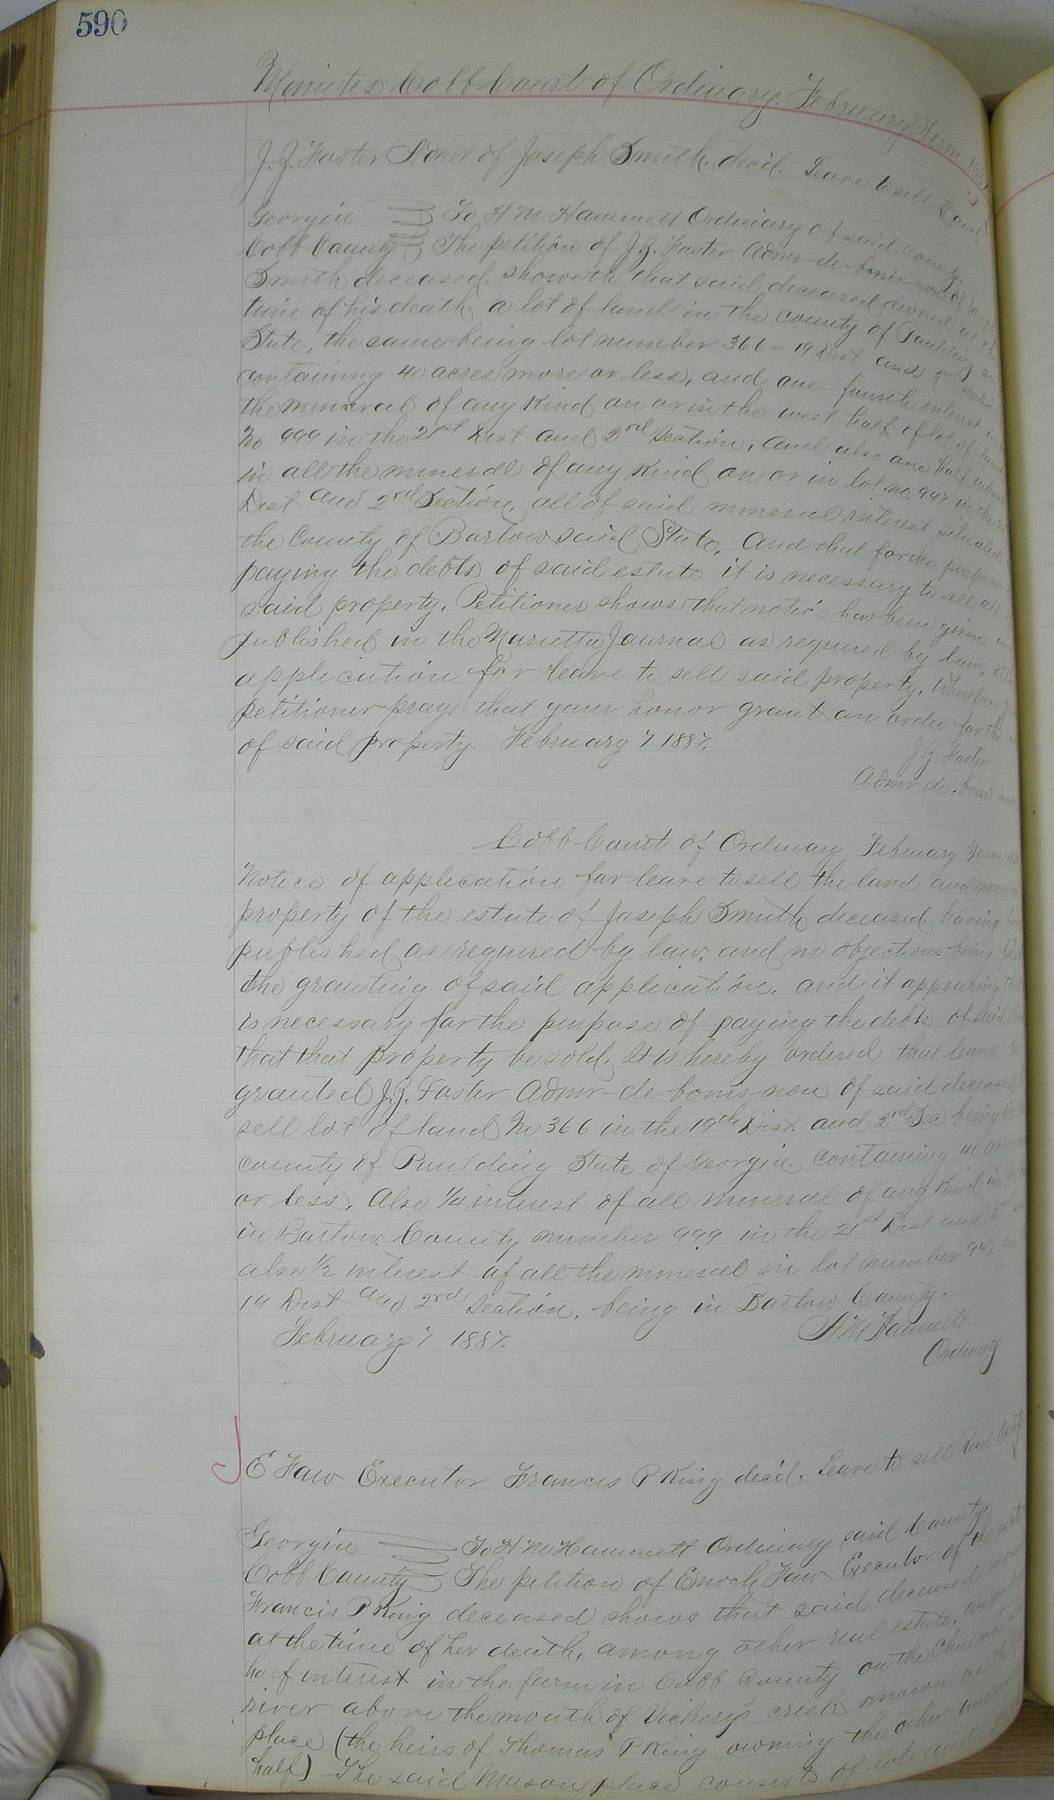 590
Minutes Cobb Court of Ordinary. February Term
J. G. Foster Admr of Joseph Smith decd. Leave to sell Land
Georgia To H M Hammett Ordinary of said County
Cobb County The petition of J. G. Foster Admr-de-bonis-non of
Smith deceased, showeth that said deceased owned at
time of his death, a lot of land in the county of Paulding
State, the same being lot number 366 - 19 Dist and
containing 40 acres more or less, and one-fourth interest in
the mineral of any Kind on or in the west half of lot of land
No 999 in the 21st Dist and 2nd Section, and also one half
in all the mineral of any Kind on or in lot no. 947 in the
Dist and 2nd Section, all of said mineral interest situated
the County of Bartow said State, And that for the purpose
paying the debts of said estate it is necessary to sell all
said property, Petitioner shows that notice has been given
published in the Marietta Journal as required by law,
application for leave to sell said property, Wherefore
petitioner prays that your honor grant an order for the
of said property. February 7 1887.
J. G. Foster
Admr de-bonis
Cobb Court of Ordinary February Term
Notice of application for leave to sell the land and
property of the estate of Joseph Smith deceased having
published as required by law, and no objections being
the granting of said application, and it appearing
is necessary for the purpose of paying the debts of said
that that property be sold. It is hereby ordered that leave
granted J. G. Foster Admr-de-bonis-non of said deceased
sell lot of land No 366 in the 19th Dist and 2nd Sec being
county of Paulding State of Georgia, containing 40
or less, Also 1/4 interest of all mineral of any Kind in
in Bartow County number 999 in the 21st Dist and 2nd
also 1/2 interest of all the mineral in lot number 947
Dist and 2nd Section, being in Bartow County.
February 7 1887.
H M Hammett
Ordinary
E Faw Executor Francis P King decd. Leave to sell Real
Georgia To H M Hammett Ordinary said County,
Cobb County The petition of Enoch Faw Executor of
Francis P King deceased shows that said deceased
at the time of her death, among other real estate,
half interest in the farm in Cobb County on the
river above the mouth of Vickery's creek known as the
place (the heirs of Thomas P King owning the other
half) The said Mason place consists of lots